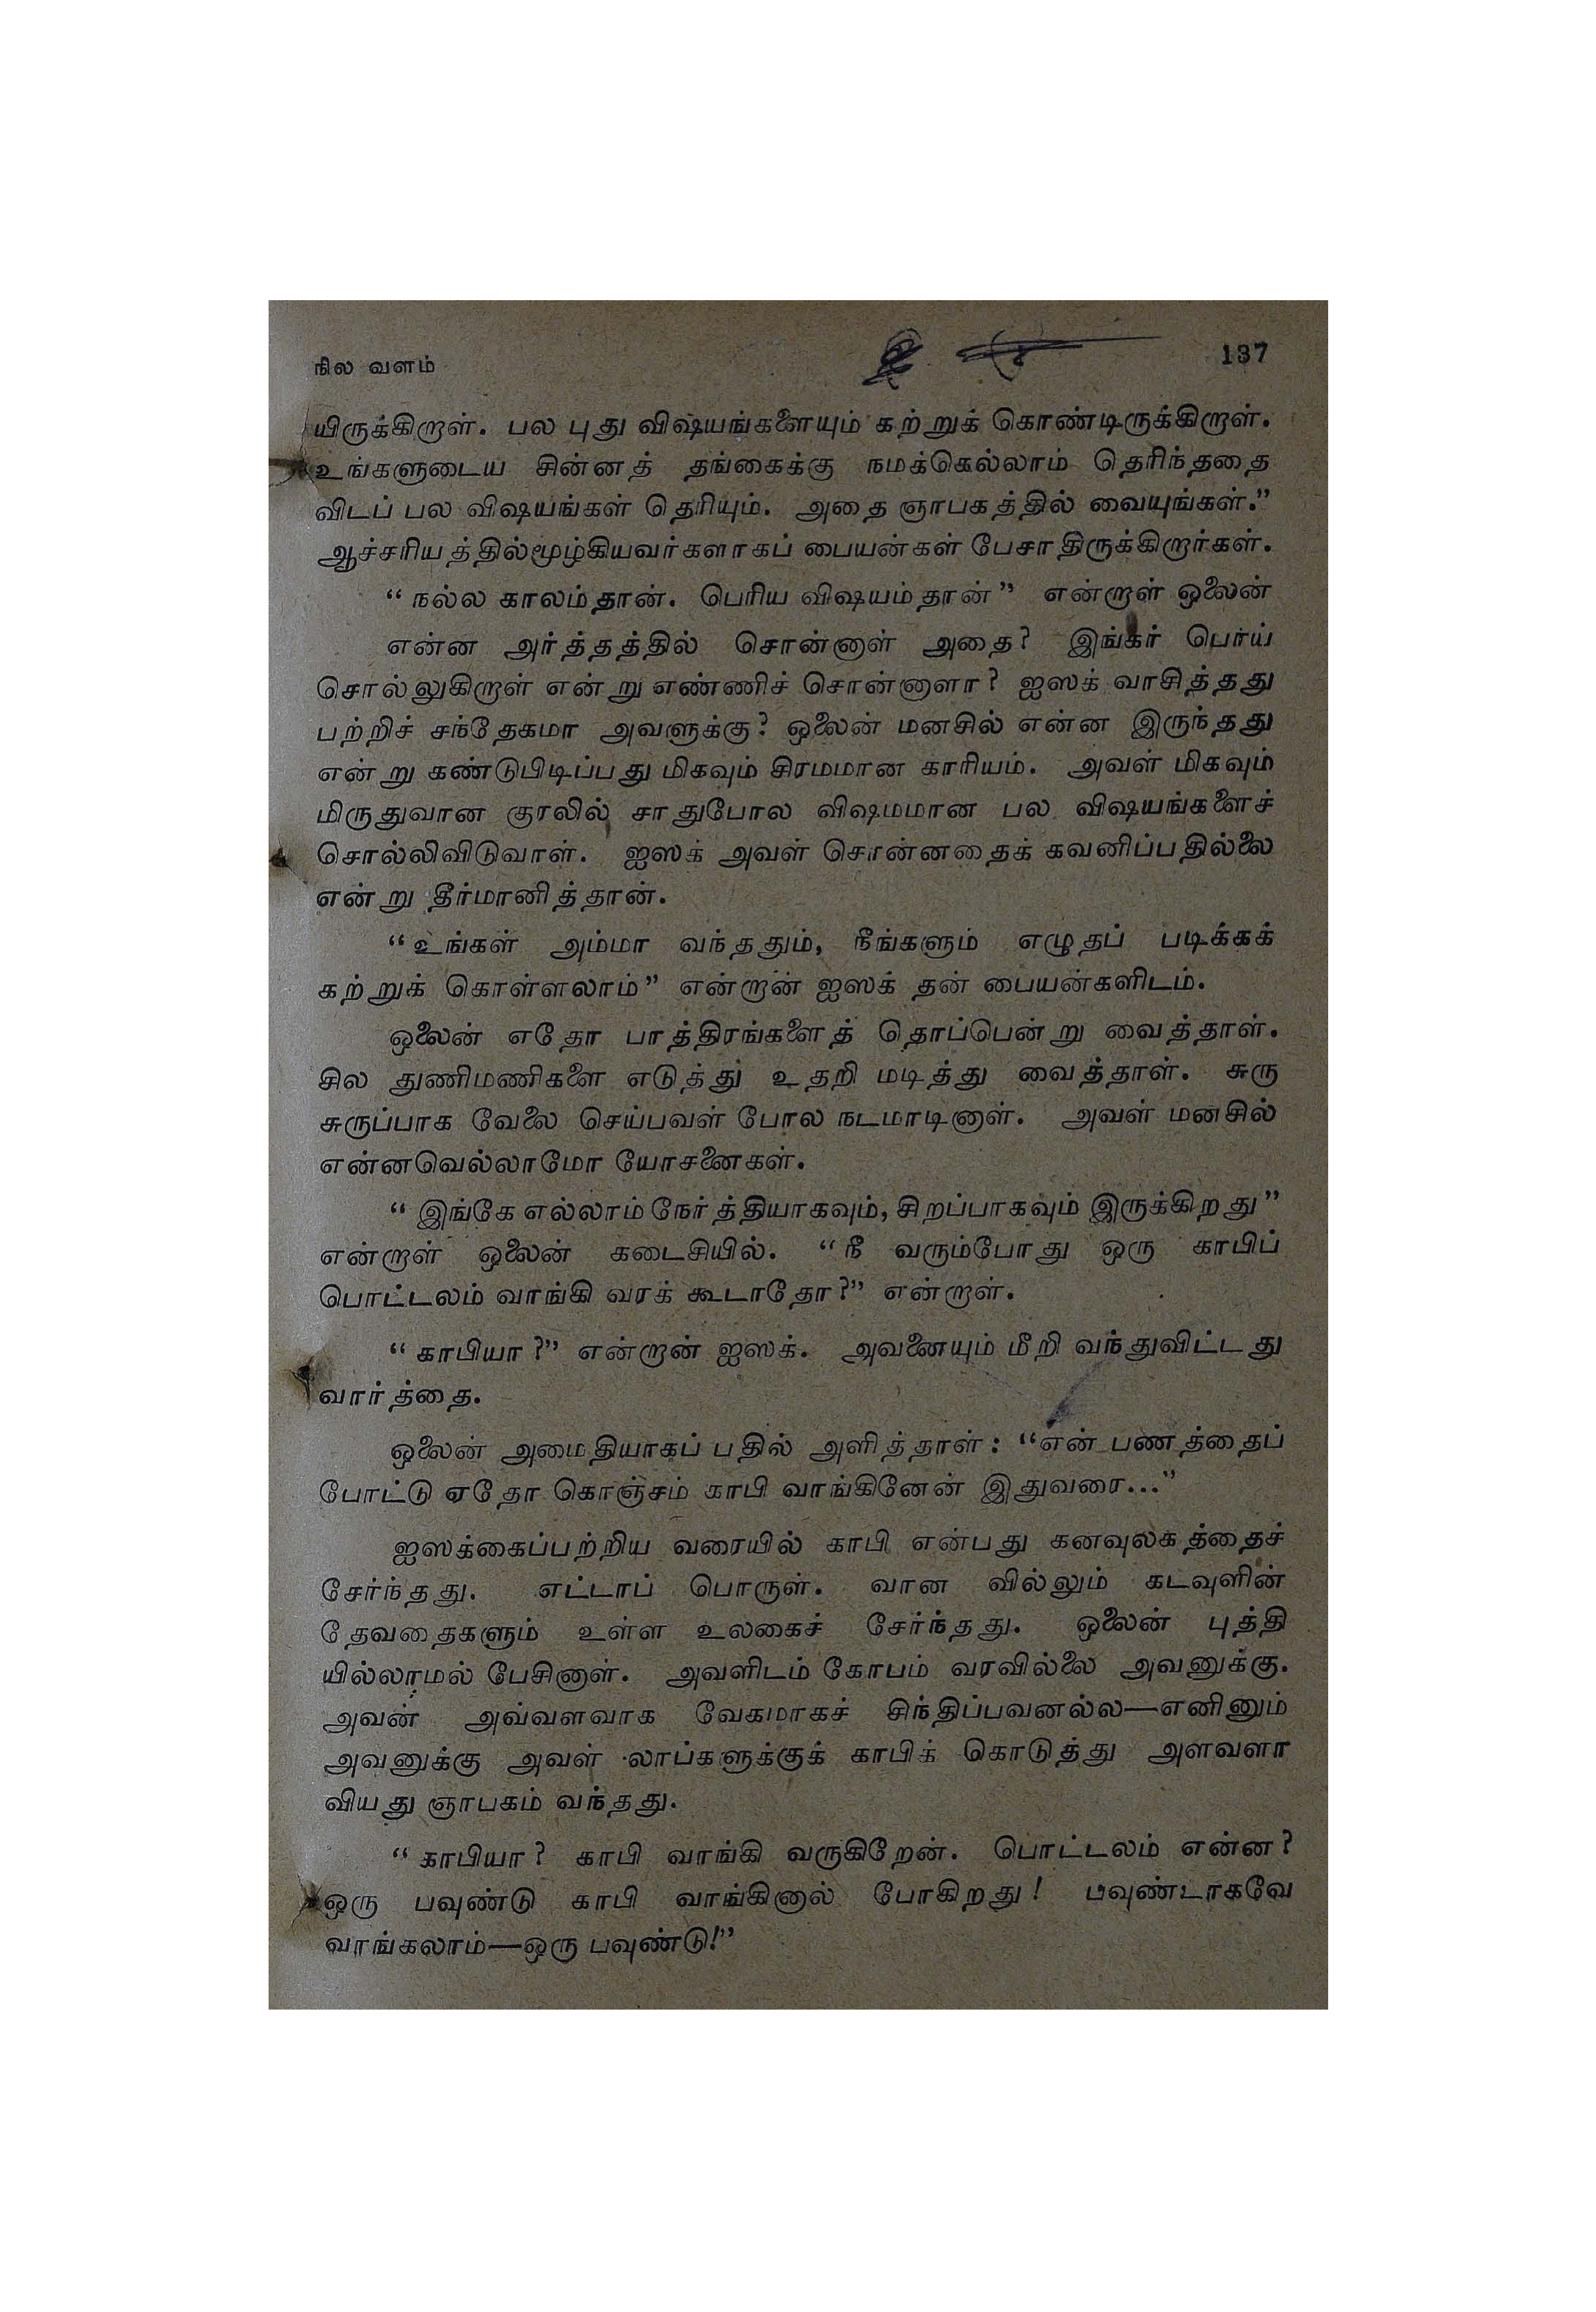 நில வளம் 137
யிருக்கிறாள். பல புது விஷயங்களையும் கற்றுக் கொண்டிருக்கிறாள்.
உங்களுடைய சின்னத் தங்கைக்கு நமக்கெல்லாம் தெரிந்ததை
விடப் பல விஷயங்கள் தெரியும். அதை ஞாபகத்தில் வையுங்கள்.”
ஆச்சரியத்தில்மூழ்கியவர்களாகப் பையன்கள் பேசாதிருக்கிறார்கள்.
“நல்ல காலம்தான். பெரிய விஷயம்தான்” என்றாள் ஒலைன்
என்ன அர்த்தத்தில் சொன்னாள் அதை? இங்கர் பொய்
சொல்லுகிறாள் என்று எண்ணிச் சொன்னாளா? ஐஸக் வாசித்தது
பற்றிச் சந்தேகமா அவளுக்கு? ஒலைன் மனசில் என்ன இருந்தது
என்று கண்டுபிடிப்பது மிகவும் சிரமமான காரியம். அவள் மிகவும்
மிருதுவான குரலில் சாதுபோல விஷமமான பல விஷயங்களைச்
சொல்லிவிடுவாள். ஐஸக் அவள் சொன்னதைக் கவனிப்பதில்லை
என்று தீர்மானித்தான்.
“உங்கள் அம்மா வந்ததும், நீங்களும் எழுதப் படிக்கக்
கற்றுக் கொள்ளலாம்” என்றான் ஐஸக் தன் பையன்களிடம்.
ஒலைன் எதோ பாத்திரங்களைத் தொப்பென்று வைத்தாள்.
சில துணிமணிகளை எடுத்து உதறி மடித்து வைத்தாள். சுரு
சுருப்பாக வேலை செய்பவள் போல நடமாடினாள். அவள் மனசில்
என்னவெல்லாமோ யோசனைகள்.
“இங்கே எல்லாம் நேர்த்தியாகவும், சிறப்பாகவும் இருக்கிறது”
என்றாள் ஒலைன் கடைசியில். “நீ வரும்போது ஒரு காபிப்
பொட்டலம் வாங்கி வரக் கூடாதோ?” என்றாள்.
“காபியா?” என்றான் ஐஸக். அவனையும் மீறி வந்துவிட்டது
வார்த்தை.
ஒலைன் அமைதியாகப் பதில் அளித்தாள்: “என் பணத்தைப்
போட்டு ஏதோ கொஞ்சம் காபி வாங்கினேன் இதுவரை...”
ஐஸக்கைப்பற்றிய வரையில் காபி என்பது கனவுலகத்தைச்
சேர்ந்தது. எட்டாப் பொருள். வான வில்லும் கடவுளின்
தேவதைகளும் உள்ள உலகைச் சேர்ந்தது. ஒலைன் புத்தி
யில்லாமல் பேசினாள். அவளிடம் கோபம் வரவில்லை அவனுக்கு.
அவன் அவ்வளவாக வேகமாகச் சிந்திப்பவனல்ல—எனினும்
அவனுக்கு அவள் லாப்களுக்குக் காபிக் கொடுத்து அளவளா
வியது ஞாபகம் வந்தது.
“காபியா? காபி வாங்கி வருகிறேன். பொட்டலம் என்ன?
ஒரு பவுண்டு காபி வாங்கினால் போகிறது! பவுண்டாகவே
வாங்கலாம்—ஒரு பவுண்டு!”